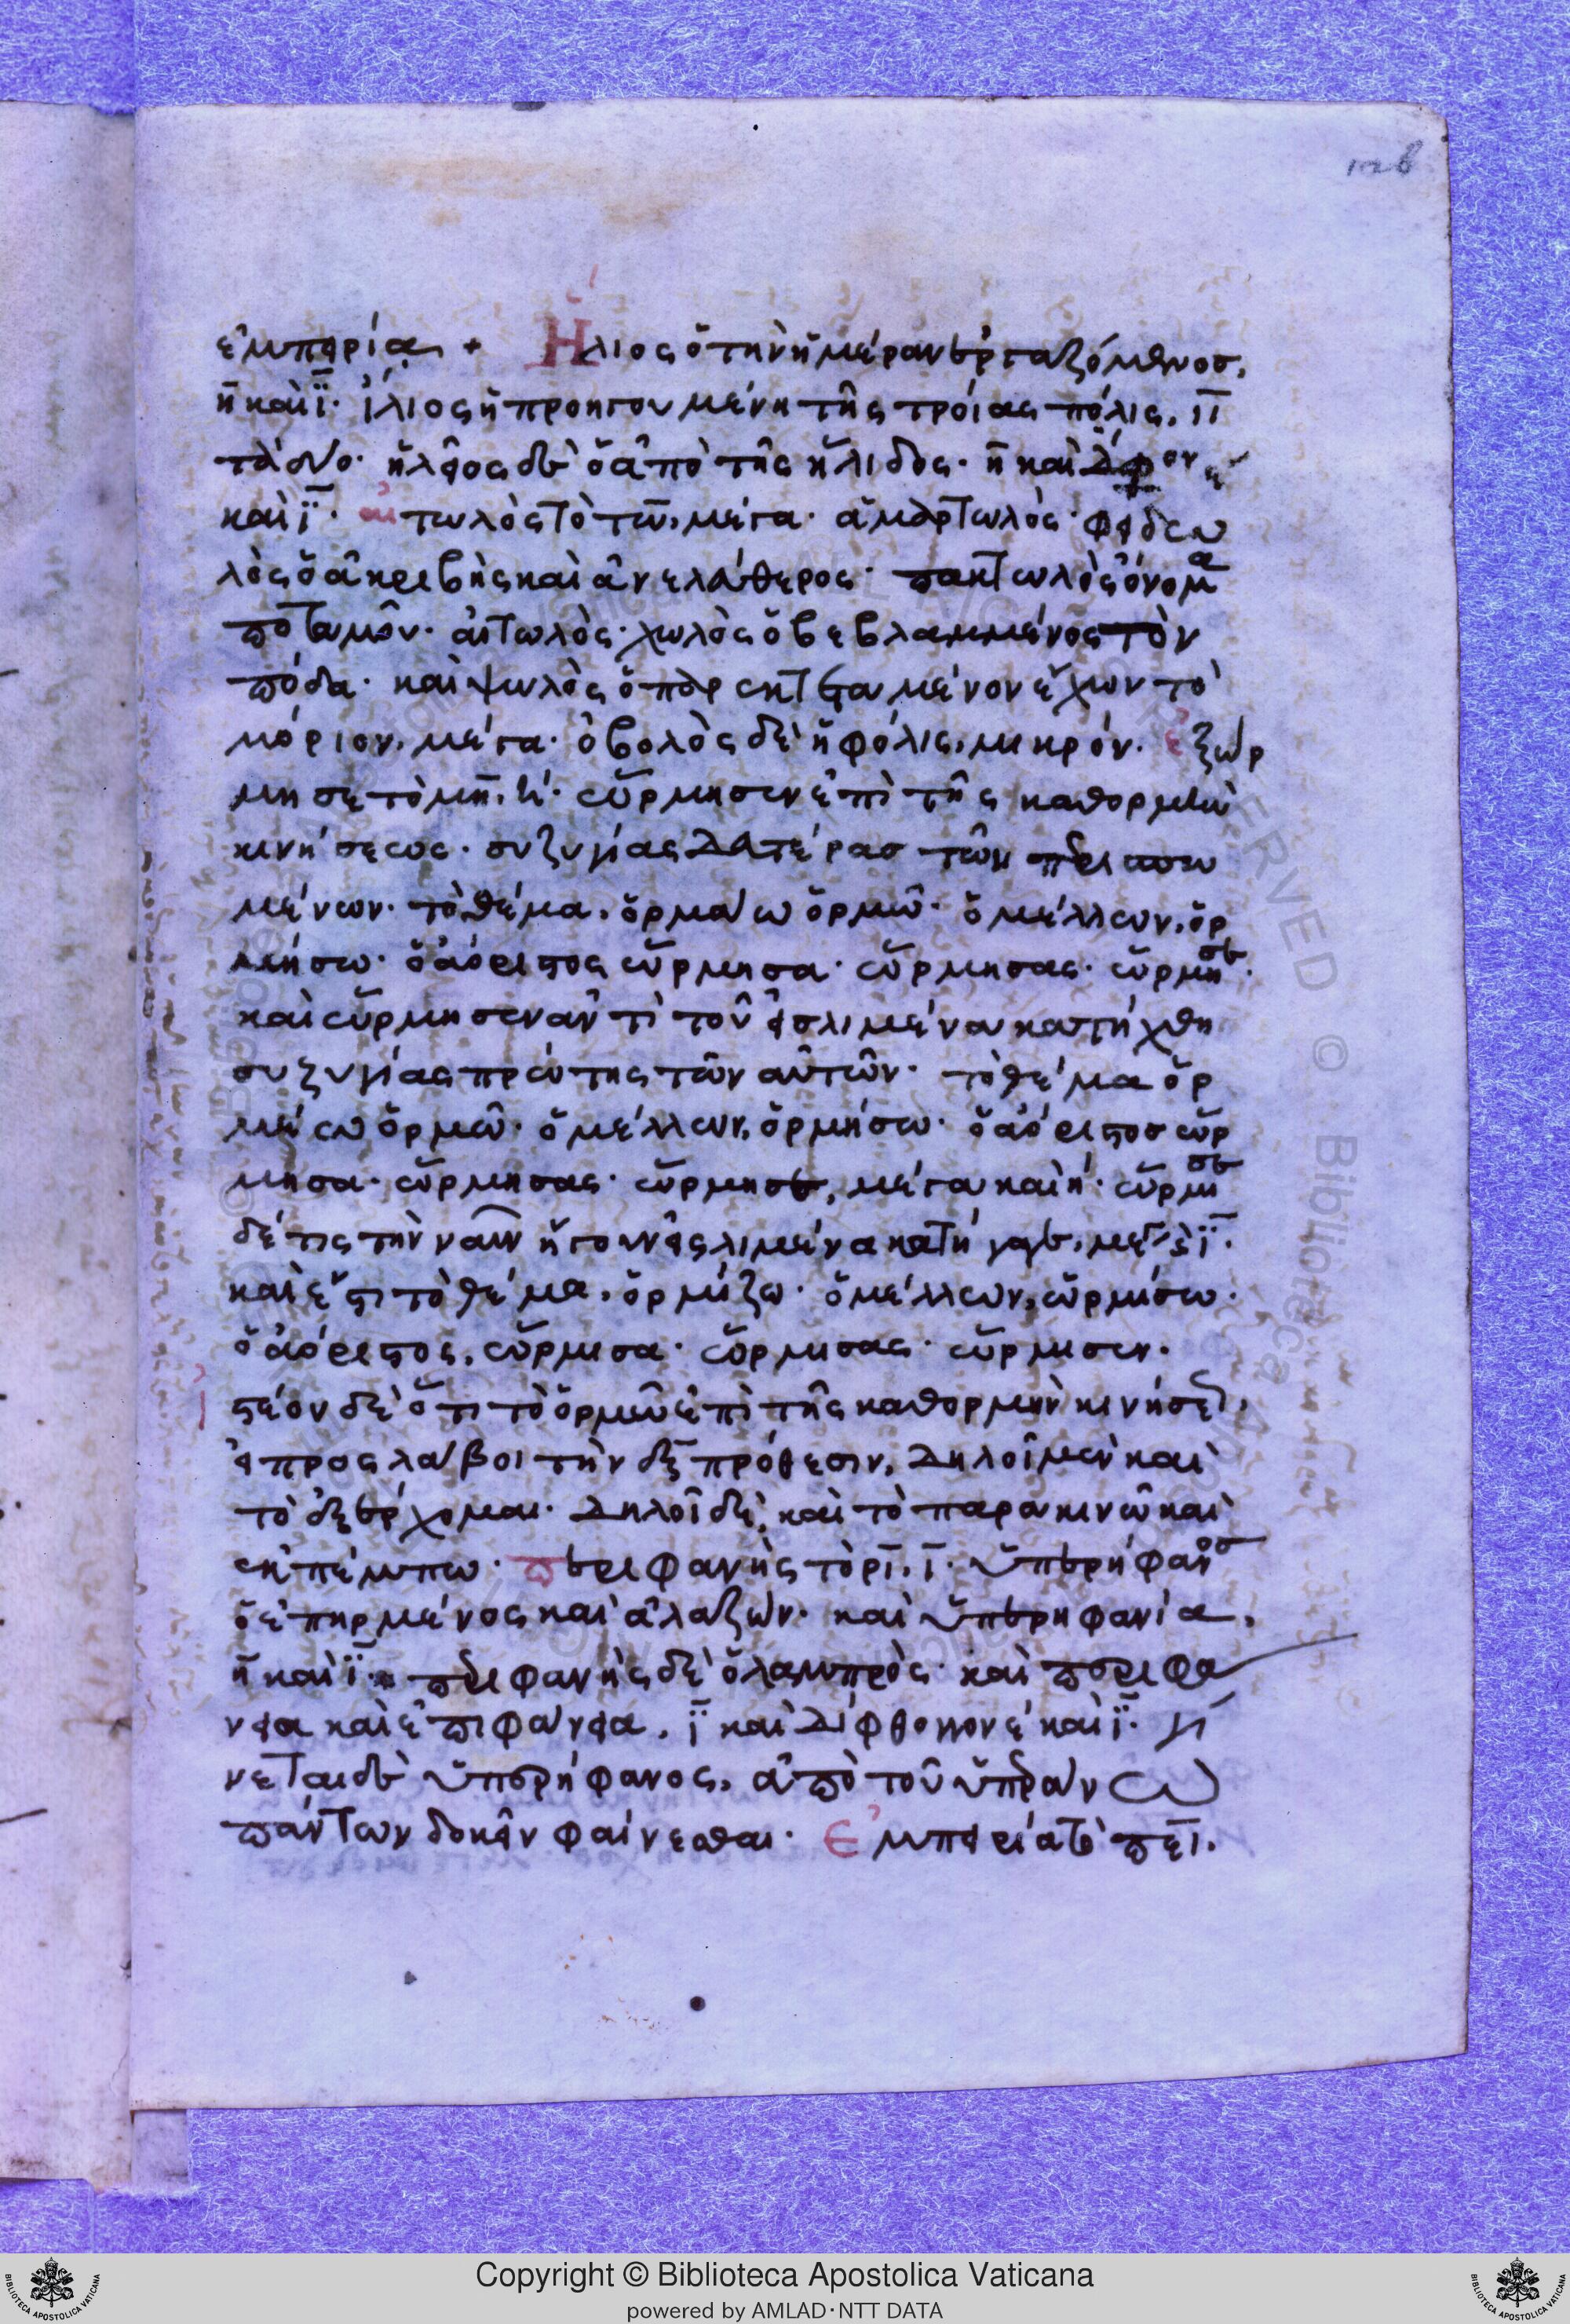 ἐμπειρία + Ἥλιος ὁ τὴν ἡμέραν ἐργαζόμενος,
η καὶ ϊ· ἴλιος ἡ προηγουμένη τῆς τροίας πόλις, ιι
τὰ δύο· ἠλεῖος δὲ ὁ ἀπὸ τῆς ἤλιδος· η καὶ
καὶ ϊ· αἰτωλὸς τὸ τω, μέγα· ἁμαρτωλός· φειδω
λὸς ὁ ἀκριβὴς καὶ ἀνελεύθερος· πακτωλὸς ὄνομα
ποταμῶν· αἰτωλὸς· χωλὸς ὁ βεβλαμμένος τὸν
πόδα· καὶ ψωλὸς ὁ παρεκτεταμένον ἔχων τὸ
μόριον, μέγα· ὀβολὸς δὲ ἡ φόλις, μικρόν· ἐξώρ
μησε τὸ μη, η· ὥρμησεν ἐπὶ τῆς καθορμὴν
κινήσεως· συζυγίας δευτέρας τῶν περισπω
μένων· τὸ θέμα, ὁρμάω ὁρμῶ· ὁ μέλλων, ὁρ
μήσω· ὁ ἀόριστος ὥρμησα· ὥρμησας· ὥρμησε·
καὶ ὥρμησεν ἀντὶ τοῦ εἰς λιμένα κατήχθη
συζυγίας πρώτης τῶν αὐτῶν· τὸ θέμα ὁρ
μέω ὁρμῶ· ὁ μέλλων, ὁρμήσω· ὁ ἀόριστος ὥρ
μησα· ὥρμησας· ὥρμησε, μέγα καὶ η· ὥρμισε
δέ τις τὴν ναῦν ἤγουν εἰς λιμένα κατήγαγε, ϊ·
καὶ ἔστι τὸ θέμα, ὁρμίζω· ὁ μέλλων, ὡρμίσω·
ὁ ἀόριστος, ὥρμισα· ὥρμισας· ὥρμισεν.
ἰστέον δὲ ὅτι τὸ ὁρμῶ ἐπὶ τῆς καθορμὴν κινήσεως,
εἰ προσλάβοι τὴν ἐξ πρόθεσιν, δηλοῖ μὲν καὶ
τὸ ἐξέρχομαι· δηλοῖ δὲ, καὶ τὸ παρακινῶ καὶ
ἐκπέμπω· περιφανὴς τὸ ρι, ι· ὑπερήφανος
ὁ ἐπηρμένος καὶ ἀλαζών· καὶ ὑπερηφανία,
η καὶ ϊ· περιφανὴς δὲ ὁ λαμπρὸς· καὶ περιφά
νεια καὶ ἐπιφάνεια, ϊ καὶ δίφθογγον ε καὶ ϊ· γί
νεται δὲ ὑπερήφανος, ἀπὸ τοῦ ὑπεράνω
πάντων δοκεῖν φαίνεσθαι· Ἐμπειρία τὸ πει.